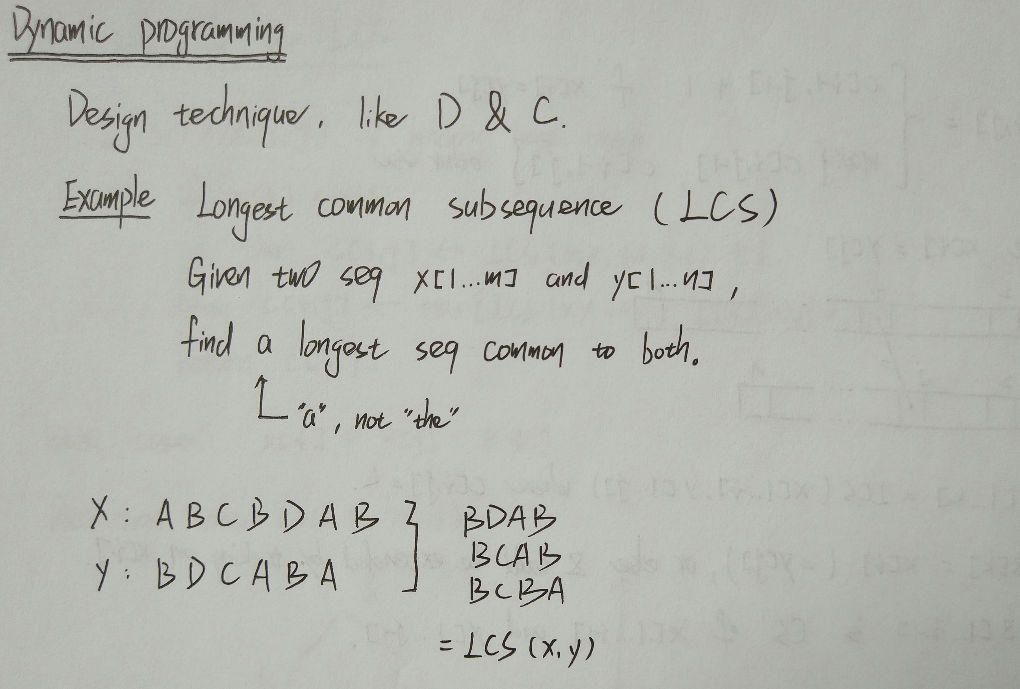 Dynamic programming
Design technique, like D & C.
Example Longest common subsequence (LCS)
Given two seq x[1...m] and y[1...n],
find a longest seq common to both.
"a", not "the"
X: A B C B D A B } BDAB
BCAB
Y: B D C A B A BCBA
= LCS (x, y)